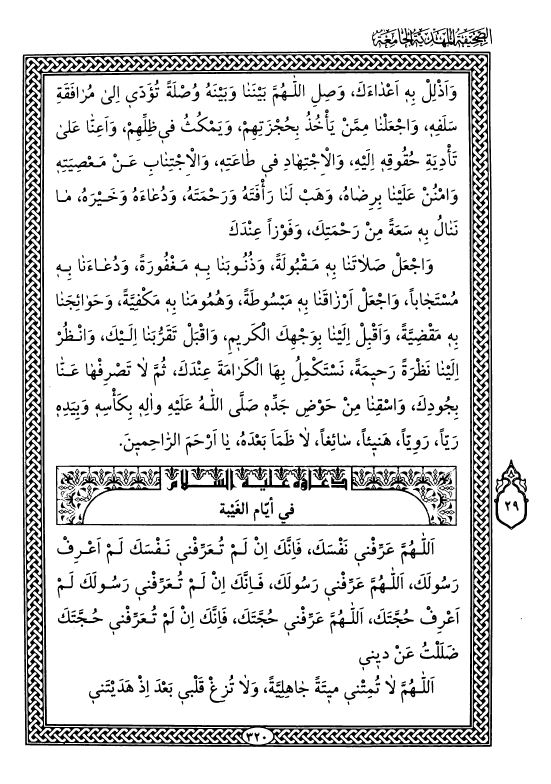 الصحيفة المهدية الجامعة
وَاَذْلِلْ بِهِ اَعْدٰاءَكَ، وَصِلِ اللّٰهُمَّ بَيْنَنٰا وَبَيْنَهُ وُصْلَةً تُؤَدّي اِلىٰ مُرٰافَقَةِ
سَلَفِهِ، وَاجْعَلْنٰا مِمَّنْ يَأْخُذُ بِحُجْزَتِهِمْ، وَيَمْكُثُ في ظِلِّهِمْ، وَاَعِنّٰا عَلىٰ
تَأْدِيَةِ حُقُوقِهِ اِلَيْهِ، وَالْاِجْتِهٰادِ في طٰاعَتِهِ، وَالْاِجْتِنٰابِ عَنْ مَعْصِيَتِهِ
وَامْنُنْ عَلَيْنٰا بِرِضٰاهُ، وَهَبْ لَنٰا رَأْفَتَهُ وَرَحْمَتَهُ، وَدُعٰاءَهُ وَخَيْرَهُ، مٰا
نَنٰالُ بِهِ سَعَةً مِنْ رَحْمَتِكَ، وَفَوْزاً عِنْدَكَ
وَاجْعَلْ صَلاٰتَنٰا بِهِ مَقْبُولَةً، وَذُنُوبَنٰا بِهِ مَغْفُورَةً، وَدُعٰاءَنٰا بِهِ
مُسْتَجٰاباً، وَاجْعَلْ اَرْزٰاقَنٰا بِهِ مَبْسُوطَةً، وَهُمُومَنٰا بِهِ مَكْفِيَّةً، وَحَوٰائِجَنٰا
بِهِ مَقْضِيَّةً، وَاَقْبِلْ اِلَيْنٰا بِوَجْهِكَ الْكَريمِ، وَاقْبَلْ تَقَرُّبَنٰا اِلَيْكَ، وَانْظُرْ
اِلَيْنٰا نَظْرَةً رَحيمَةً، نَسْتَكْمِلُ بِهَا الْكَرٰامَةَ عِنْدَكَ، ثُمَّ لاٰ تَصْرِفْهٰا عَنّٰا
بِجُودِكَ، وَاسْقِنٰا مِنْ حَوْضِ جَدِّهِ صَلَّى اللّٰهُ عَلَيْهِ وَالِهِ بِكَأْسِهِ وَبِيَدِهِ
رَيّاً، رَوِيّاً، هَنيئاً، سٰائِغاً، لاٰ ظَمَأَ بَعْدَهُ، يٰا اَرْحَمَ الرّٰاحِمينَ.
دعاؤه عليه السلام
في أيّام الغَيْبة
٢٩
اَللّٰهُمَّ عَرِّفْني نَفْسَكَ، فَاِنَّكَ اِنْ لَمْ تُعَرِّفْني نَفْسَكَ لَمْ اَعْرِفْ
رَسُولَكَ، اَللّٰهُمَّ عَرِّفْني رَسُولَكَ، فَاِنَّكَ اِنْ لَمْ تُعَرِّفْني رَسُولَكَ لَمْ
اَعْرِفْ حُجَّتَكَ، اَللّٰهُمَّ عَرِّفْني حُجَّتَكَ، فَاِنَّكَ اِنْ لَمْ تُعَرِّفْني حُجَّتَكَ
ضَلَلْتُ عَنْ ديني
اَللّٰهُمَّ لاٰ تُمِتْني ميتَةً جٰاهِلِيَّةً، وَلاٰ تُزِغْ قَلْبي بَعْدَ اِذْ هَدَيْتَني
٣٢٠